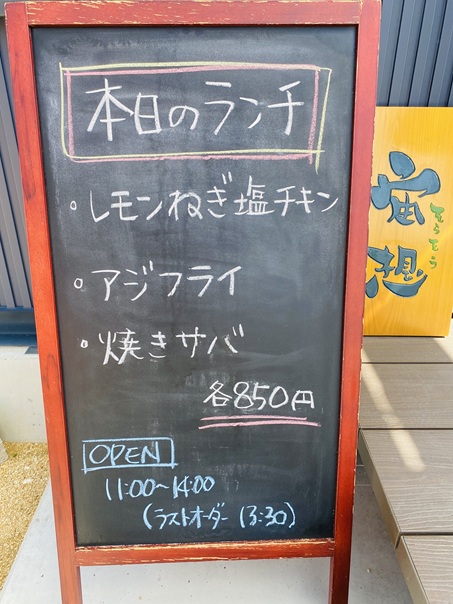 本日のランチ
・レモンねぎ塩チキン
・アジフライ
・焼きサバ
各850円
OPEN
11:00~14:00
(ラストオーダー 13:30)
宙想
そらそう